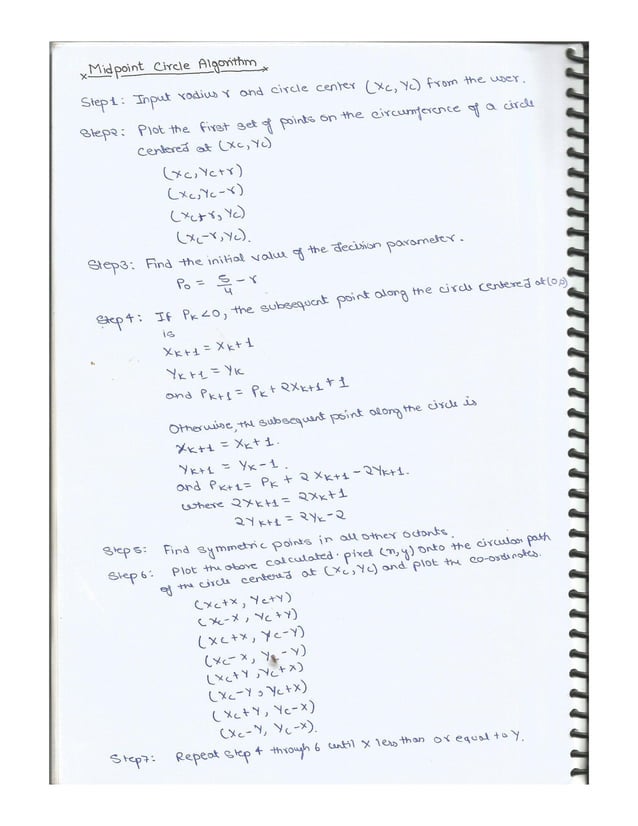 Midpoint Circle Algorithm
Step1: Input radius r and circle center (xc, yc) from the user.
Step2: Plot the first set of points on the circumference of a circle
centered at (xc, yc)
(xc, yc+r)
(xc, yc-r)
(xc+r, yc)
(xc-r, yc).
Step3: Find the initial value of the decision parameter.
P0 = 5/4 - r
Step4: If Pk<0, the subsequent point along the circle centered at (0,0)
is
xk+1 = xk+1
yk+1 = yk
and Pk+1 = Pk + 2xk+1 + 1
Otherwise, the subsequent point along the circle is
xk+1 = xk+1.
yk+1 = yk-1.
and Pk+1 = Pk + 2xk+1 - 2yk+1.
where 2xk+1 = 2xk+1
2yk+1 = 2yk-2
Step5: Find symmetric points in all other octants.
Step6: Plot the above calculated pixel (x,y) onto the circular path
of the circle centered at (xc, yc) and plot the co-ordinates.
(xc+x, yc+y)
(xc-x, yc+y)
(xc+x, yc-y)
(xc-x, yc-y)
(xc+y, yc+x)
(xc-y, yc+x)
(xc+y, yc-x)
(xc-y, yc-x).
Step7: Repeat Step 4 through 6 until x less than or equal to y.